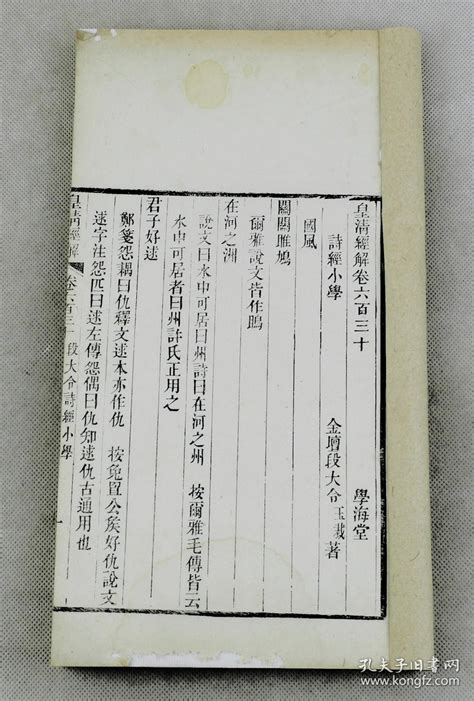 皇清經解卷六百三十　　學海堂
詩經小學　　金壇段大令玉裁著
國風
關關雎鳩
爾雅說文皆作鴡
在河之洲
說文曰水中可居曰州詩曰在河之州　按爾雅毛傳皆云
水中可居者曰州許氏正用之
君子好逑
鄭箋怨耦曰仇釋文逑本亦作仇　按兔罝公矦好仇說文
逑字注怨匹曰逑左傳怨偶曰仇知逑仇古通用也
皇清經解　卷六百三十　段大令詩經小學　一
孔夫子旧书网
www.kongfz.com